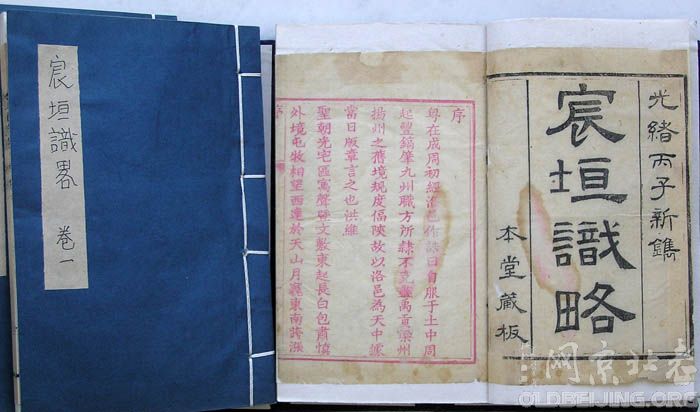 宸垣識畧 卷一
光緒丙子新鐫
宸垣識略
本堂藏板
序
粤在成周初經洛邑作誥曰自服于土中周
起豐鎬肇九州職方所隸不克盡禹貢梁州
揚州之舊境規度偪陜故以洛邑為天中據
當日版章言之也洪維
聖朝光宅區寓聲曁文敷東起長白包肅慎
外境屯牧相望西達於天山月竁東南薄漲
序
网京北老
OLDBEIJING.ORG